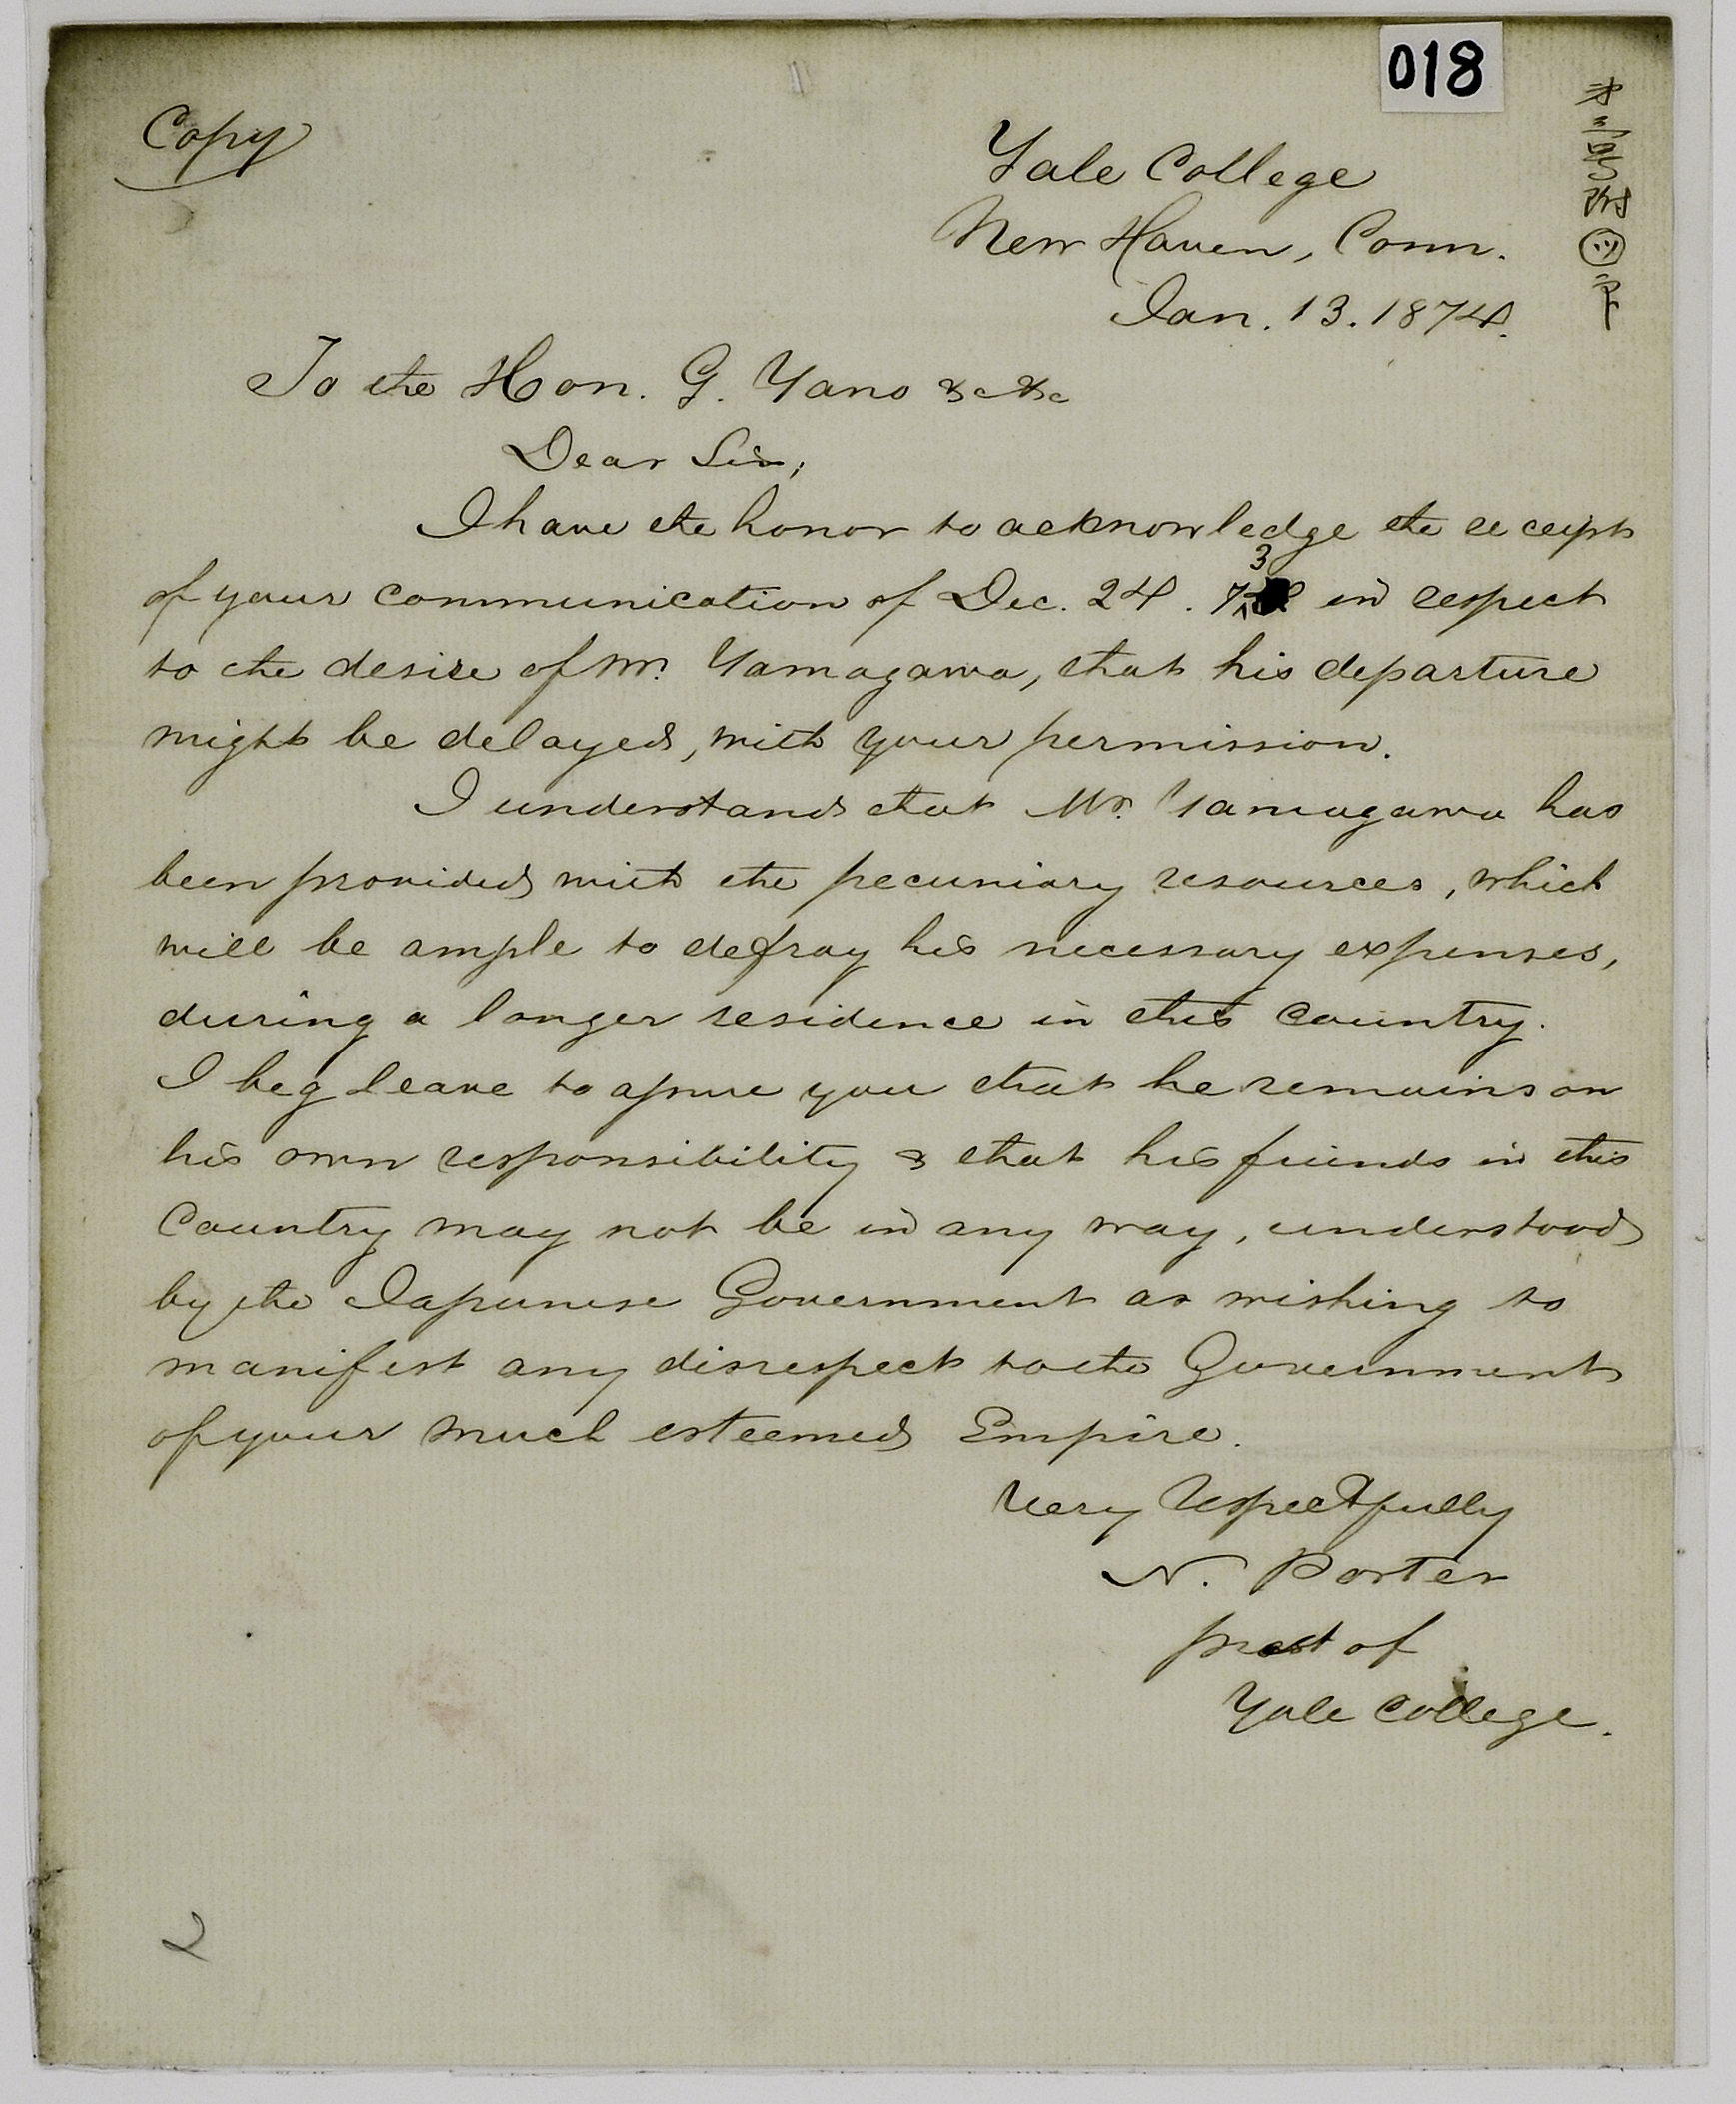 018
Copy
Yale College
New Haven, Conn.
Jan. 13. 1874.
To the Hon. G. Yano &c &c
Dear Sir;
I have the honor to acknowledge the receipt
of your communication of Dec. 24. 73 in respect
to the desire of Mr. Yamagawa, that his departure
might be delayed, with your permission.
I understand that Mr. Yamagawa has
been provided with the pecuniary resources, which
will be ample to defray his necessary expenses,
during a longer residence in this country.
I beg leave to assure you that he remains on
his own responsibility & that his friends in this
Country may not be in any way, understood
by the Japanese Government as wishing to
manifest any disrespect to the Government
of your much esteemed Empire.
Very Respectfully
N. Porter
prest of
Yale College.
2